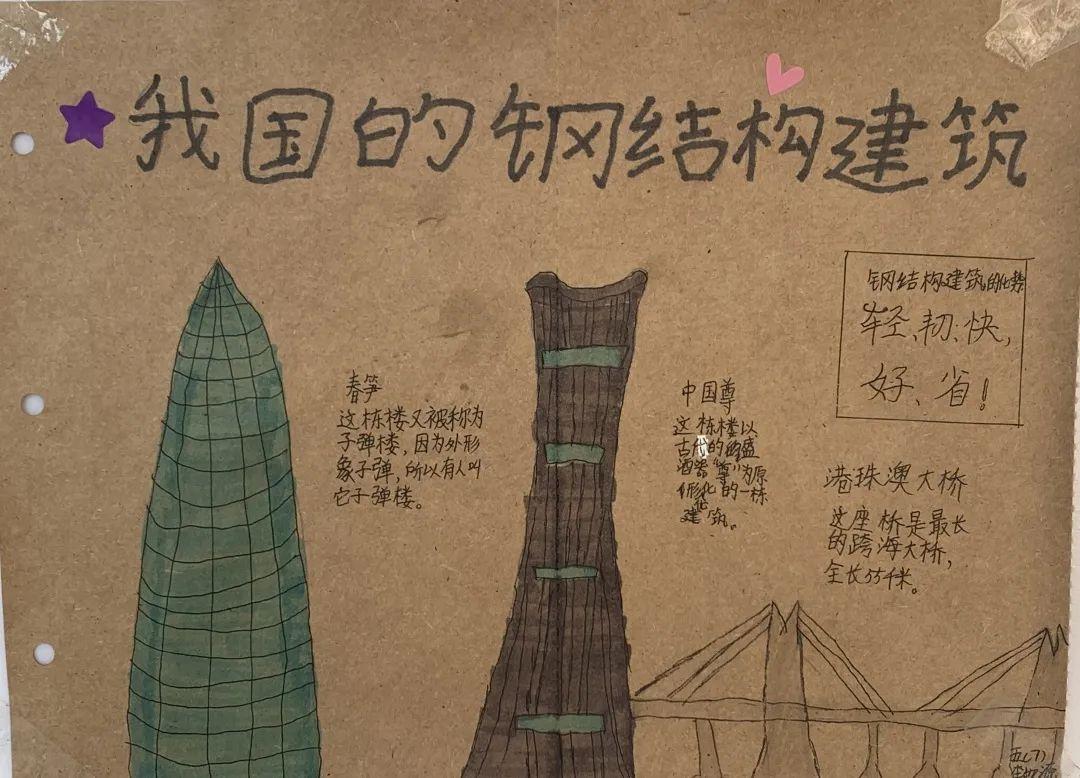 我国的钢结构建筑
春笋
这栋楼又被称为
子弹楼，因为外形
象子弹，所以有人叫
它子弹楼。
中国尊
这栋楼以
古代的盛
酒器“尊”为原
形化的一栋
建筑。
钢结构建筑的优势
轻、韧、快，
好、省！
港珠澳大桥
这座桥是最长
的跨海大桥，
全长55千米。
五(7)